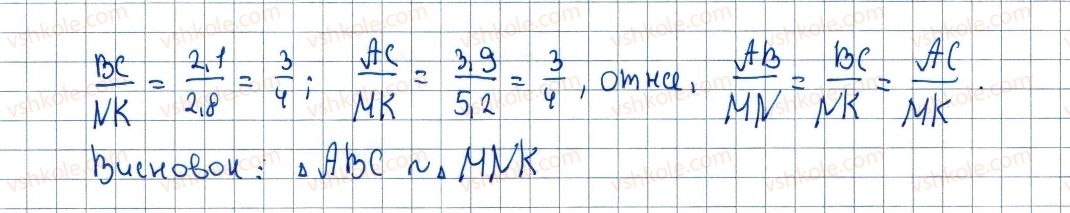 BC/NK = 2,1/2,8 = 3/4; AC/MK = 3,9/5,2 = 3/4, отже, AB/MN = BC/NK = AC/MK.
Висновок: △ABC ~ △MNK